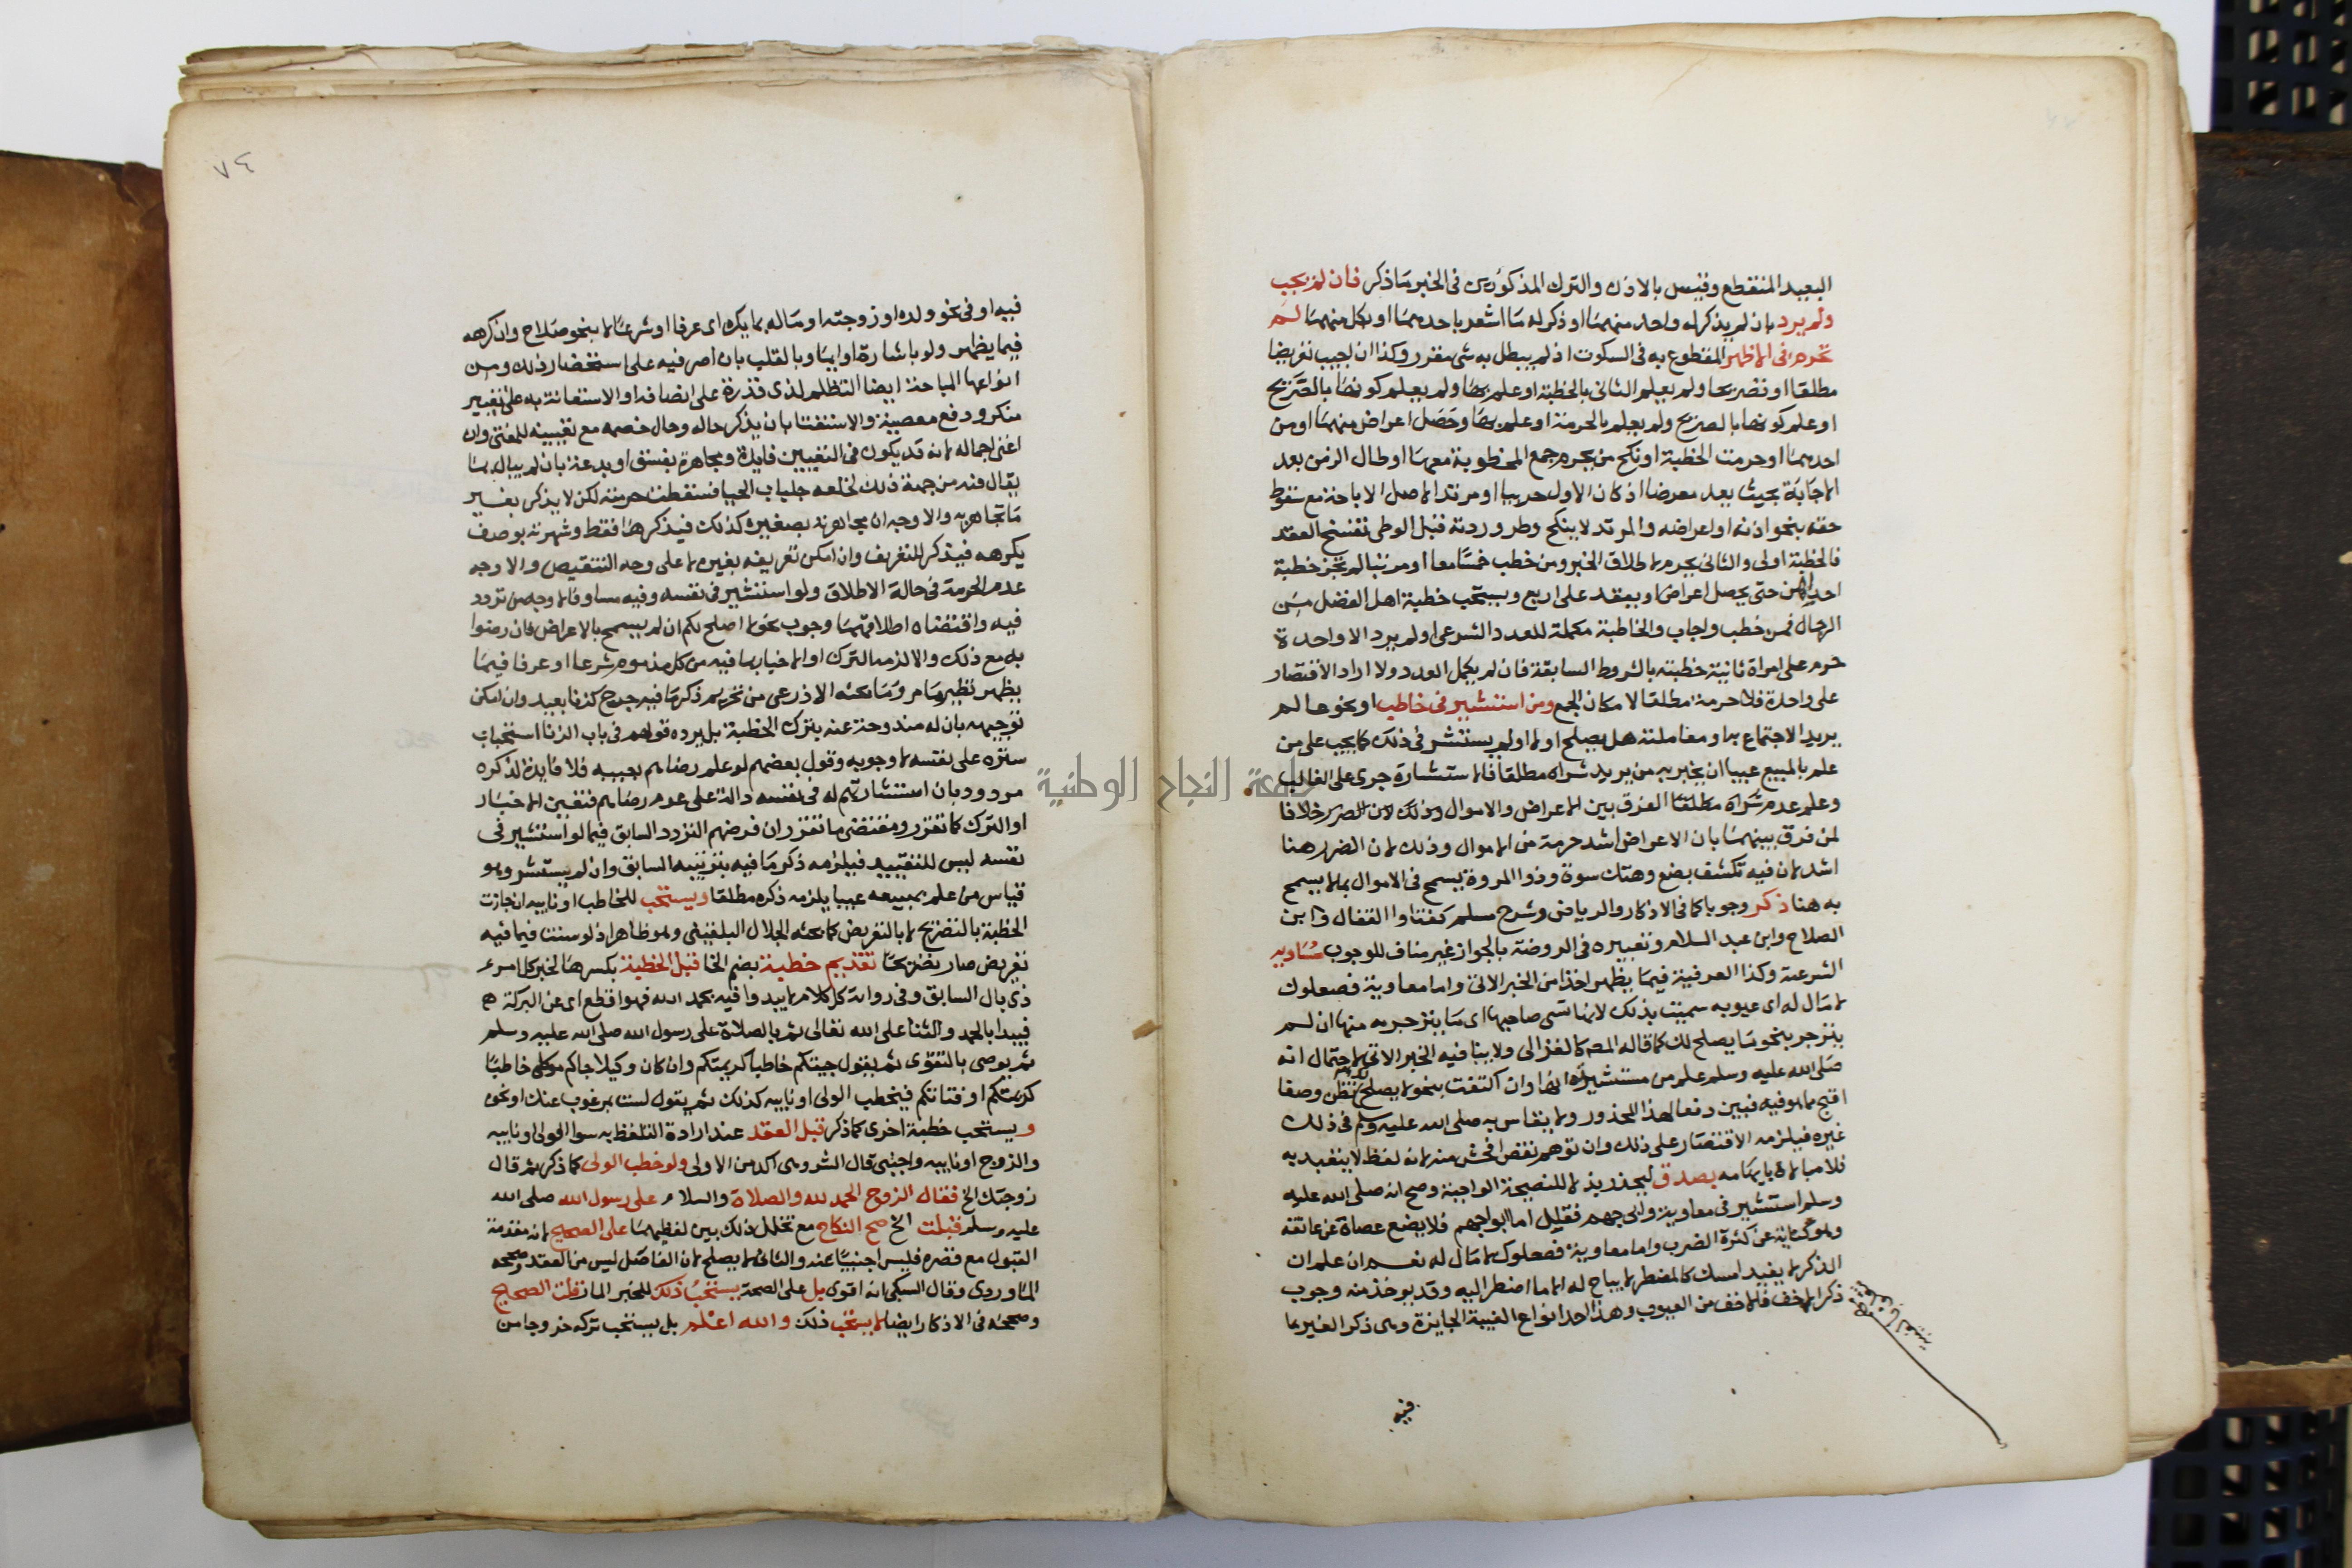 البعيد المنقطع وقيس بالاذن والترك المذكورين في الخبر ما ذكر فان لم يجب
ولم يرد بان لم يذكر له واحد منهما او ذكر له ما اشعر باحدهما او بكل منهما لم
تحرم في الاظهر المقطوع به في السكوت اذ لم يبطل به شي مقرر وكذا ان اجيب تعريضا
مطلقا او تصريحا ولم يعلم الثاني بالخطبة او علم بها ولم يعلم كونها بالصريح
او علم كونها بالصريح ولم يعلم بالحرمة او علم بها وحصل اعراض منهما او من
احدهما او حرمت الخطبة او نكح من يحرم جمع المخطوبة معها او طال الزمن بعد
الاجابة بحيث يعد معرضا اذ كان الاول حربيا او مرتدا لاصل الاباحة مع سقوط
حقه بنحو اذنه او اعراضه والمرتد لا ينكح وطرو ردته قبل الوطي تفسخ العقد
فالخطبة اولى والثاني يحرم لاطلاق الخبر ومن خطب خمسا معا او مرتبا لم تجز خطبة
احداهن حتى يحصل اعراض او يعقد على اربع ويستحب خطبة اهل الفضل من
الرجال فمن خطب واجاب والخاطبة مكملة للعدد الشرعي او لم يرد الا واحدة
حرم على امراة ثانية خطبته بالشروط السابقة فان لم يكمل العدد ولا اراد الاقتصار
على واحدة فلا حرمة مطلقا لامكان الجمع ومن استشير في خاطب او نحو عالم
يريد الاجتماع به او معاملته هل يصلح اولا او لم يستشر في ذلك كما يجب على من
علم بالمبيع عيبا ان يخبر به من يريد شراه مطلقا فالاستشارة جرى على الغالب
وعلم عدم شراه مطلقا الفرق بين الاعراض والاموال وذلك لان الضرر خلافا
لمن فرق بينهما بان الاعراض اشد حرمة من الاموال وذلك لان الضرر هنا
اشد لان فيه تكشف بضع وهتك سوة وذو المروة يسمح في الاموال بما لا يسمح
به هنا ذكر وجوبا كما في الاذكار والرياض وشرح مسلم كفتاوا القفال وابن
الصلاح وابن عبد السلام وتعبيره في الروضة بالجواز غير مناف للوجوب مساويه
الشرعية وكذا العرفية فيما يظهر اخذا من الخبر الاتي واما معاوية فصعلوك
لا مال له اي عيوبه سميت بذلك لانها تسي صاحبها اي ما ينزجر به منها ان لم
ينزجر بنحو ما يصلح لك كما قاله المص كالغزالي ولا ينافيه الخبر الاتي لاحتمال انه
صلى الله عليه وسلم علم من مستشيرته انها وان اكتفت بنحو لا يصلح تظن وصفا
اقبح مما هو فيه فبين دفعا لهذا المحذور ولا يقاس به صلى الله عليه وسلم في ذلك
غيره فيلزمه الاقتصار على ذلك وان توهم نقص افحش منه لانه لفظ لا يتقيد به
فلا مبالاة بايهامه بصدق ليحذر بذلا للنصيحة الواجبة وصح انه صلى الله عليه
وسلم استشير في معاوية وابي جهم فقيل اما ابو جهم فلا يضع عصاة عن عاتقه
وهو كناية عن كثرة الضرب واما معاوية فصعلوك لا مال له نعم ان علم ان
الذكر لا يفيد امسك كالمضطر لا يباح له الا ما اضطر اليه وقد يوخذ منه وجوب
ذكر الاخف فالاخف من العيوب وهذا احد انواع الغيبة الجايزة وهي ذكر الغير بما
فيه
٧٤
فيه او في نحو ولده او زوجته او ماله بما يكره اي عرفا او شرعا لا بنحو صلاح وان كرهه
فيما يظهر ولو باشارة او ايما وبالقلب بان اصر فيه على استحضار ذلك ومن
انواعها المباحة ايضا التظلم لذي قدرة على انصافه او الاستعانة به على تغيير
منكر ودفع معصية والاستفتا بان يذكر حاله وحال خصمه مع تعيينه للمفتي وان
اغنى اجماله لانه قد يكون في التعيين فايدة ومجاهرة بفسق او بدعة بان لم يبال بما
يقال فيه من جهة ذلك لخلعه جلباب الحيا فسقطت حرمته لكن لا يذكر بغير
ما تجاهر به والاوجه ان مجاهرته بصغيرة كذلك فيذكرها فقط وشهرته بوصف
يكرهه فيذكر للتعريف وان امكن تعريفه بغيره لا على وجه التنقيص والاوجه
عدم الحرمة في حالة الاطلاق ولو استشير في نفسه وفيه مساو فالاوجه من تردد
فيه واقتضاه اطلاقهما وجوب نحو لا اصلح لكم ان لم يسمح بالاعراض فان رضوا
به مع ذلك والا لزمه الترك او الاخبار بما فيه من كل مذموم شرعا او عرفا فيما
يظهر نظير ما مر وما بحثه الاذرعي من تحريم ذكر ما فيه جرح كزنا بعيد وان امكن
توجيهه بان له مندوحة عنه بترك الخطبة بل يرده قولهم في باب الزنا استحباب
ستره على نفسه لا وجوبه وقول بعضهم لو علم رضاهم بعيبه فلا فايدة لذكره
مردود بان استشارتهم له في نفسه دالة على عدم رضاهم فتعين الاخبار
او الترك كما تقرر ومقتضى ما تقرر ان فرضهم التردد السابق فيما لو استشير في
نفسه ليس للتقييد فيلزمه ذكر ما فيه بترتيبه السابق وان لم يستشر وهو
قياس من علم بمبيعه عيبا يلزمه ذكره مطلقا ويستحب للخاطب او نايبه ان جازت
الخطبة بالتصريح لا بالتعريض كما بحثه الجلال البلقيني وهو ظاهر اذ لو سنت فيما فيه
تعريض صار تصريحا تقديم خطبة بضم الخا قبل الخطبة بكسرها لخبر كل امر
ذي بال السابق وفي رواية كل كلام لا يبدا فيه بحمد الله فهو اقطع اي عن البركة
فيبدا بالحمد والثنا على الله تعالى ثم بالصلاة على رسول الله صلى الله عليه وسلم
ثم يوصي بالتقوى ثم يقول جيتكم خاطبا كريمتكم وان كان وكيلا جاكم موكلي خاطبا
كريمتكم او فتاتكم فيخطب الولي او نايبه كذلك ثم يقول لست بمرغوب عنك او نحوه
ويستحب خطبة اخرى كما ذكر قبل العقد عند ارادة التلفظ به سوا الولي او نايبه
والزوج او نايبه واجنبي قال الشروى اكد من الاولى ولو خطب الولي كما ذكر ثم قال
زوجتك الخ فقال الزوج الحمد لله والصلاة والسلام على رسول الله صلى الله
عليه وسلم قبلت الخ صح النكاح مع تخلل ذلك بين لفظيهما على الصحيح لانه مقدمة
القبول مع قصره فليس اجنبيا عنه والثاني لا يصلح لان الفاصل ليس من العقد وصححه
الماوردي وقال السبكي انه اقوى بل على الصحة يستحب ذلك للخبر المار قلت الصحيح
وصححه في الاذكار ايضا لا يستحب ذلك والله اعلم بل يستحب تركه خروجا من
جامعة النجاح الوطنية